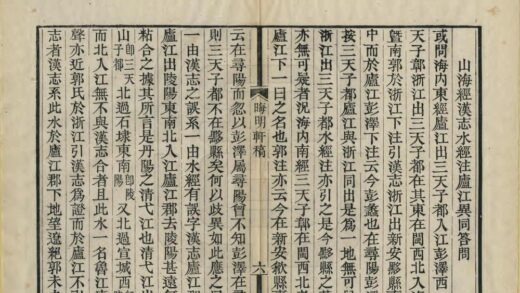 山海經漢志水經注廬江異同答問
或問海內東經廬江出三天子都入江彭澤西
天子鄣浙江出三天子都在其東在閩西北入
暨南郭於浙江下注引漢志浙江出新安黟縣
中而於廬江彭澤下注云今彭蠡也在尋陽彭
按三天子都廬江與浙江同出是爲一地無可
浙江出三天子都水經注亦引之是今黟縣之
亦無可疑者況海內南經三天子鄣在閩西
廬江下一曰之名也郭注亦云今在新安歙縣
晦明軒稿
六
云在尋陽而忽以彭澤屬尋陽曾不知彭澤在
則三天子都不在黟縣矣何以歧異如此應之
一由漢志之誤系一由水經有誤字漢志廬江
粘合之據其所言是丹陽之清弋江也清弋江
廬江出陵陽東南北入江廬江郡去陵陽甚遠
山即三天子都北過石埭東南即陵陽又北過宣城西
而北入江無不與漢志合者且此水一名魯江
聲亦近郭氏於浙江引漢志爲證而於廬江不
志者漢志系此水於廬江郡下地望遼絕郭未